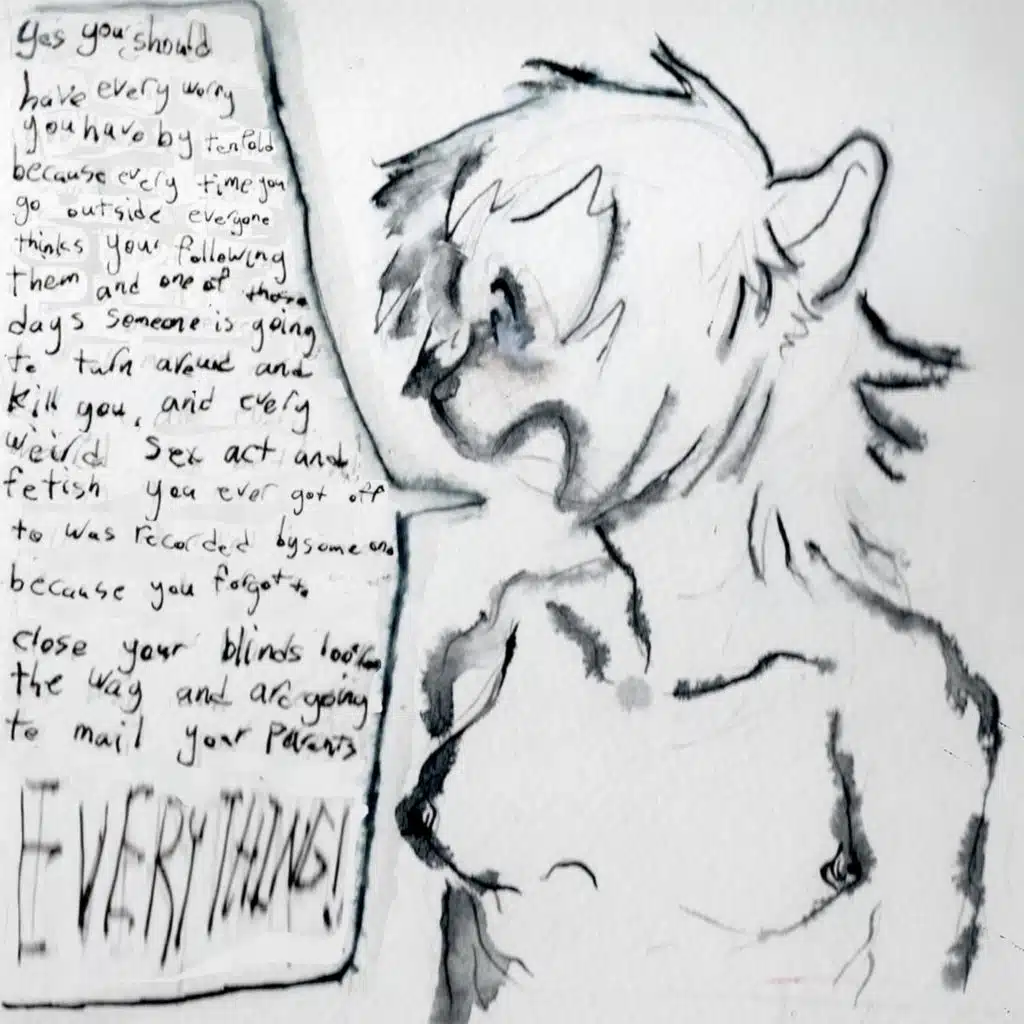 Yes you should
have every worry
you have by tenfold
because every time you
go outside everyone
thinks your following
them and one of those
days someone is going
to turn around and
kill you, and every
weird sex act and
fetish you ever got off
to was recorded by someone
because you forgot to
close your blinds too
the way and are going
to mail your parents
EVERYTHING!